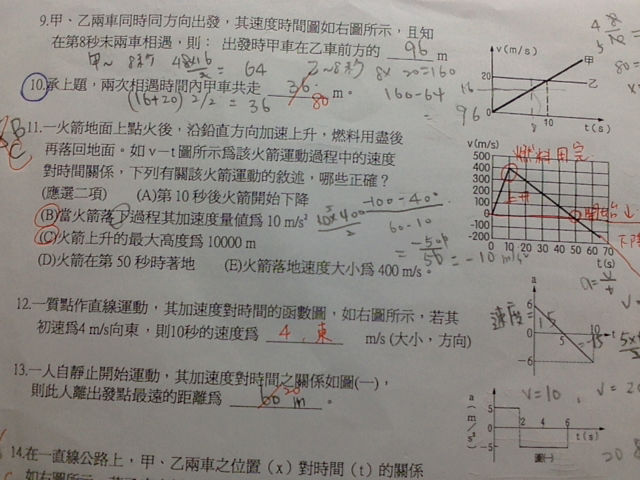 9.甲、乙兩車同時同方向出發，其速度時間圖如右圖所示，且知
在第8秒末兩車相遇，則： 出發時甲車在乙車前方的 96 m
甲~8秒 = 64 乙~8秒 8x 20=160
10.承上題，兩次相遇時間內甲車共走 36 80 m。 160-64
(16+20) 2/2 = 36 = 96
v(m/s)
甲
20
乙
16
8
10
t(s)
11.一火箭地面上點火後，沿鉛直方向加速上升，燃料用盡後
再落回地面。如 v－t 圖所示為該火箭運動過程中的速度
對時間關係，下列有關該火箭運動的敘述，哪些正確？
(應選二項) (A)第 10 秒後火箭開始下降
(B)當火箭落下過程其加速度量值為 10 m/s²
(C)火箭上升的最大高度為 10000 m
(D)火箭在第 50 秒時著地 (E)火箭落地速度大小為 400 m/s。
-100-400
60-10
= -10 m/s²
v(m/s)
燃料用完
500
400
300
200
100
0
-100
-200
上升
開始
下降
0 10 20 30 40 50 60 70
t(s)
12.一質點作直線運動，其加速度對時間的函數圖，如右圖所示，若其
初速為4 m/s向東，則10秒的速度為 4，東 m/s (大小，方向)
a
速度=
6
15
5
10
t
-6
=-15
13.一人自靜止開始運動，其加速度對時間之關係如圖(一)，
則此人離出發點最遠的距離為 60 20 m 。
v=10 , v=20
a(m/s²)
5
-5
2 4 6
t(s)
圖(一)
14.在一直線公路上，甲、乙兩車之位置（x）對時間（t）的關係